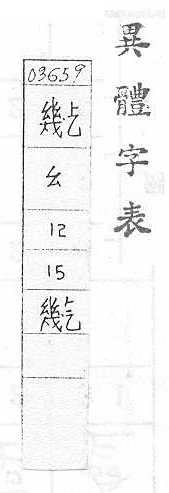 異體字表
03659
㡮
幺
12
15